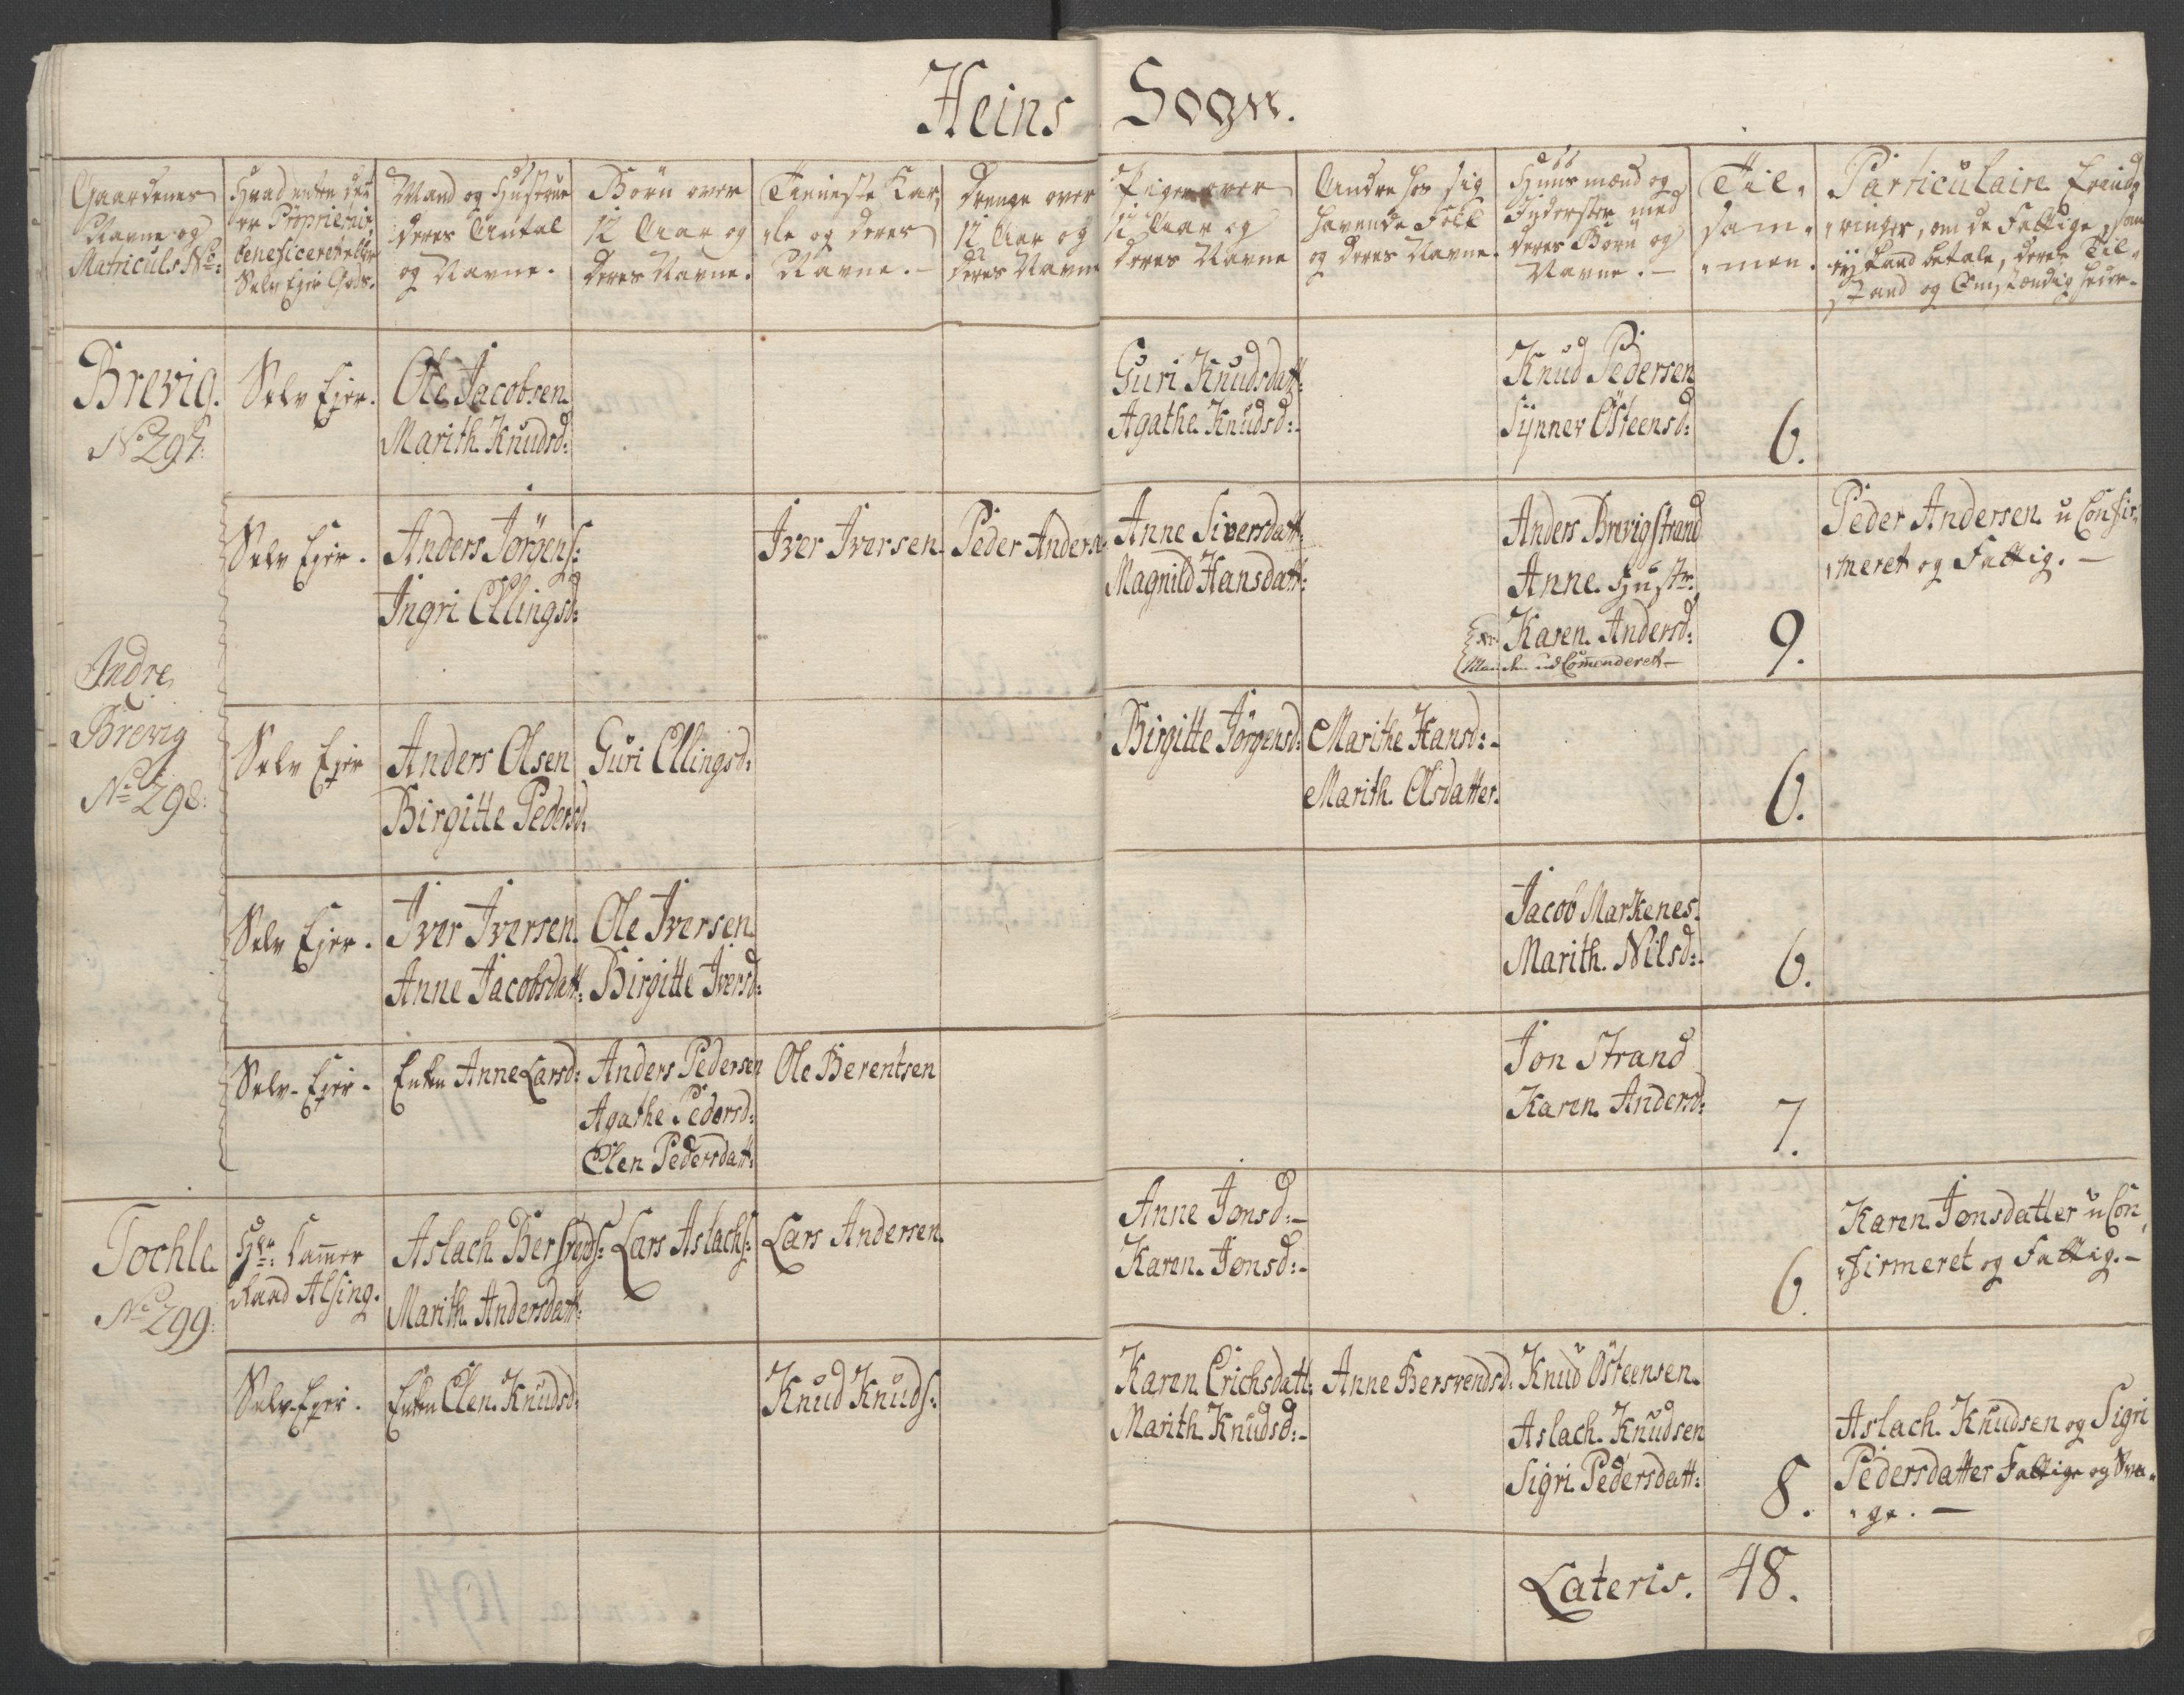 Heins Sogn.
Gaardenes
Navne og
Matriculs No:
Hvad enten det
er Proprietair,
beneficeret eller
Selv Ejer Gods.
Mand og Hustrue
deres Antal
og Navne.
Børn over
12 Aar og
deres Navne.
Tieneste Kar,
le og deres
Navne. -
Drenge over
12 Aar og
deres Navne
Piger over
12 Aar og
deres Navne
Andre hos sig
havende Folk
og deres Navne.
Huusmænd og
Inderster med
deres Børn og
Navne. -
Til,
sam,
,men.
Particulaire Erind,
,ringer, om de Fattige, som
ej kand betale, deres Til,
stand og Omstændigheder.
Brevig.
No 297.
Selv Ejer.
Ole Jacobsen.
Marith. Knudsd:
Guri Knudsdatt:
Agathe Knudsd:-
Knud Pedersen
Synnev Østeensd:
6.
Indre
Brevig
No 298.
Selv Ejer.
Anders Jörgens:
Ingri Ellingsd:
Iver Iversen.
Peder Anders
Anne Siversdatt:
Magnild Hansdatt:
Anders Brevigstrand
Anne. Hustr.
Karen. Andersd:
Manden udCommenderet-
9.
Peder Andersen u Confir,
,meret og Fattig. -
Selv Ejer
Anders Olsen
Birgitte Pedersd:
Guri Ellingsd:
Birgitte Jörgensd:
Marithe Hansd:-
Marith. Olsdatter.
6.
Selv Ejer.
Iver Iversen.
Anne Jacobsdatt:
Ole Iversen.
Birgitte Iversd:
Jacob Markenes.
Marith. Nilsd:-
6.
Selv-Ejer.
Enken Anne Larsd:
Anders Pedersen
Agathe Pedersd:
Elen Pedersdatt:
Ole Berentsen
Jon Strand
Karen. Andersd:
7.
Tochle.
No 299.
Hr: Cammer
Raad Alsing.
Aslach Bersvends:
Marith Andersdatt:
Lars Aslachs:
Lars Andersen.
Anne Jonsd:-
Karen. Jonsd:-
6.
Karen. Jonsdatter u Con,
,firmeret og Fattig.-
Selv-Ejer.
Enken Elen. Knudsd:
Knud Knuds:
Karen. Erichsdatt:
Marith. Knudsd:-
Anne Bersvendsd:
Knud Østeensen.
Aslach. Knudsen
Sigri. Pedersdatt:
8.
Aslach. Knudsen og Sigri
Pedersdatter Fattige og Svа,
,ge. -
Lateris. 48.